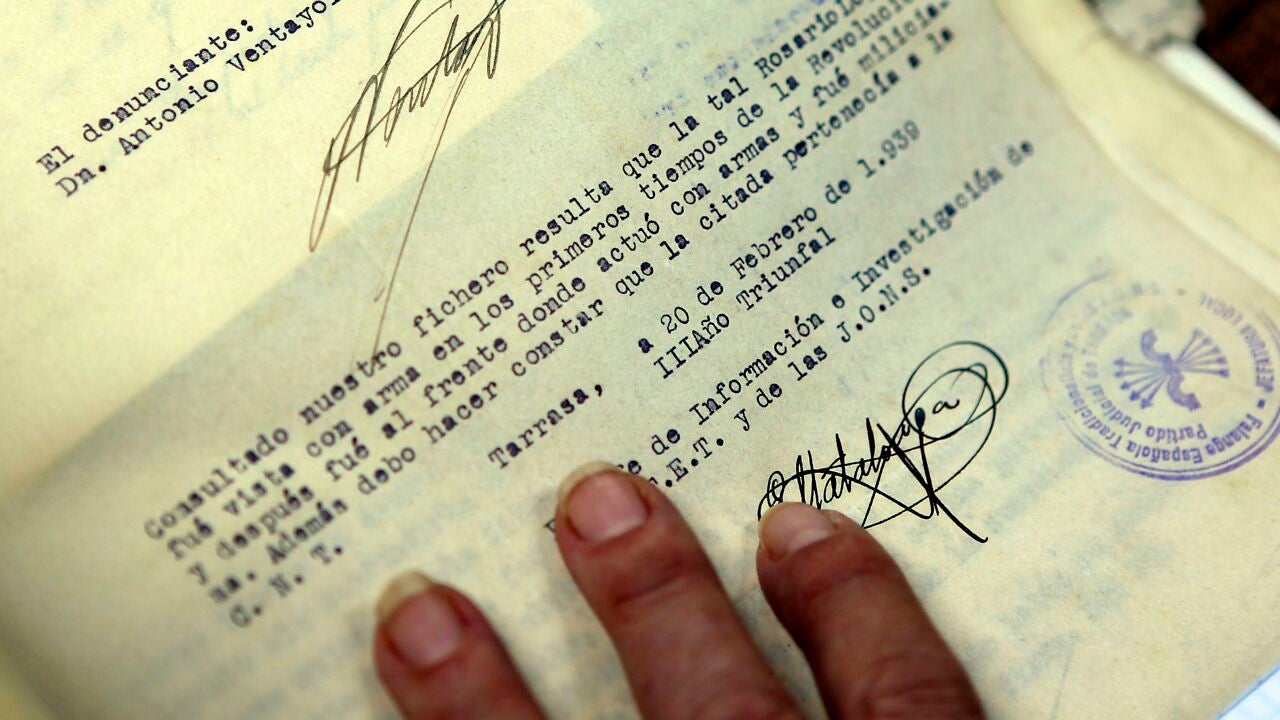 El denunciante:
Dn. Antonio Ventayo
Consultado nuestro fichero resulta que la tal Rosario
fué vista con arma en los primeros tiempos de la Revoluci
y después fué al frente donde actuó con armas y fué milicia-
na. Además debo hacer constar que la citada pertenecía a la
C. N. T.
Tarrasa, a 20 de Febrero de 1.939
IIIAño Triunfal
fe de Información e Investigación de
.E.T. y de las J.O.N.S.
Falange Española Tradicionalista
Partido Judicial de
JEFATURA LOCAL